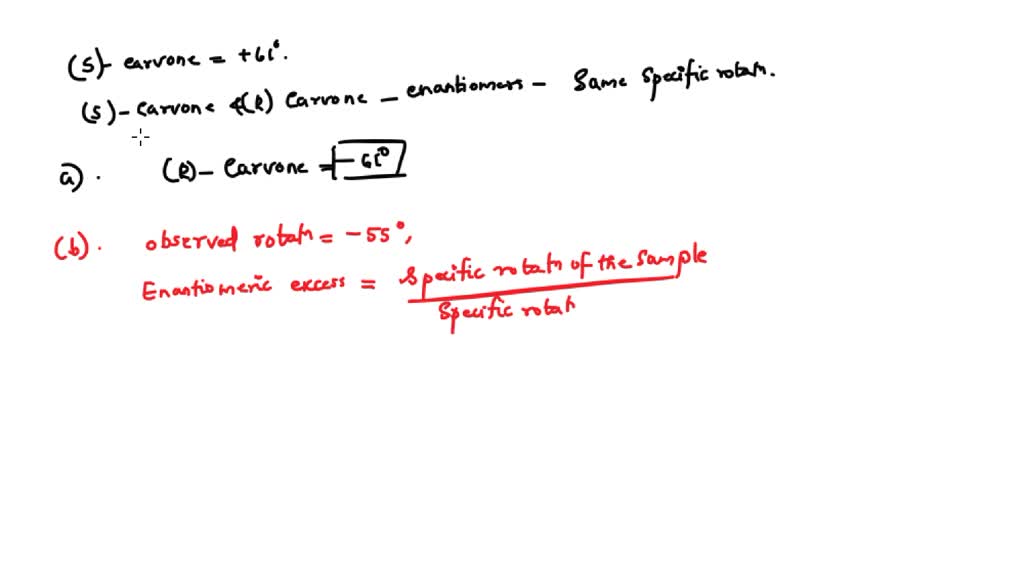 (S)- carvone = +61°.
(S)- carvone &(R) carvone - enantiomers - Same specific rotatn.
a). (R)- carvone = -61°
(b). observed rotatn = -55°,
Enantiomeric excess = specific rotatn of the sample
specific rotatn